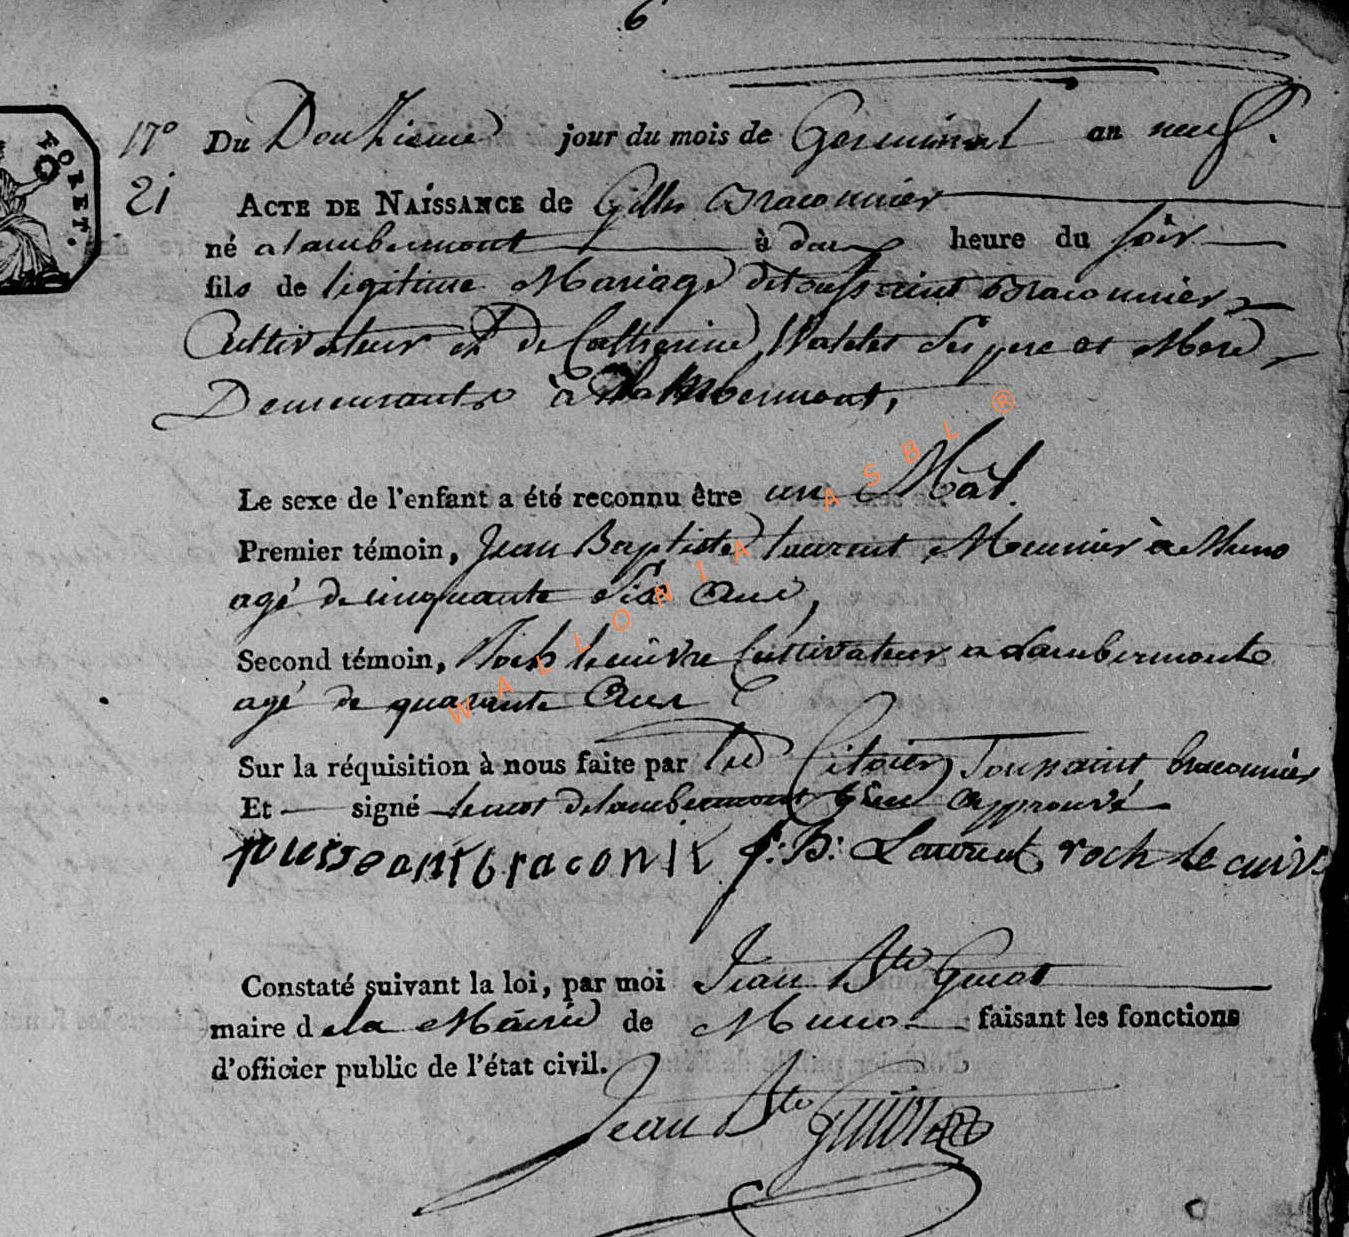 6
FORET.
17° Du Douzieme jour du mois de Germinal an neuf.
21 ACTE DE NAISSANCE de Gilles Braconnier
né a lambermont à deux heure du soir
fils de legitime Mariage de toussaint Braconnier
Cultivateur et De Catherine Watelet Ses pere et Mere
Demeurants à Lambermont,
Le sexe de l'enfant a été reconnu être un Mâl.
Premier témoin, Jean Baptiste laurent Meunier à Muno
agé de cinquante Six Ans,
Second témoin, Roch le cuivre Cultivateur a Lambermont
agé de quarante Ans
Sur la réquisition à nous faite par le Citoien Toussaint braconnier
Et signé le mot de lambermont approuvé
toussant braconir J: B: Laurent roch le cuivr
Constaté suivant la loi, par moi Jean Bte Guiot
maire de la Mairie de Muno faisant les fonctions
d'officier public de l'état civil.
Jean Bte guiot
WALLONIA ASBL ®